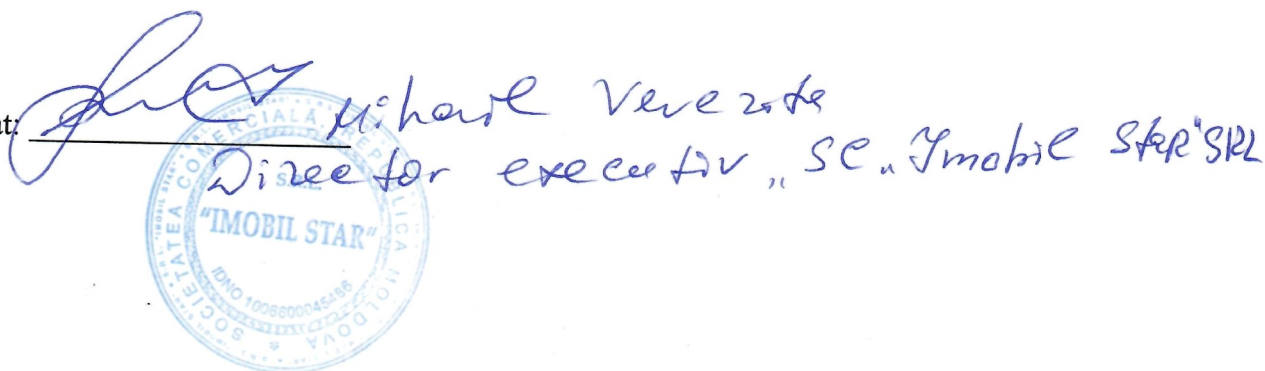 at:
Mihail
Director executiv „ SC „Imobil Star" SRL
SOCIETATEA COMERCIALĂ * REPUBLICA MOLDOVA *
S.R.L.
"IMOBIL STAR"
IDNO 1006600045486